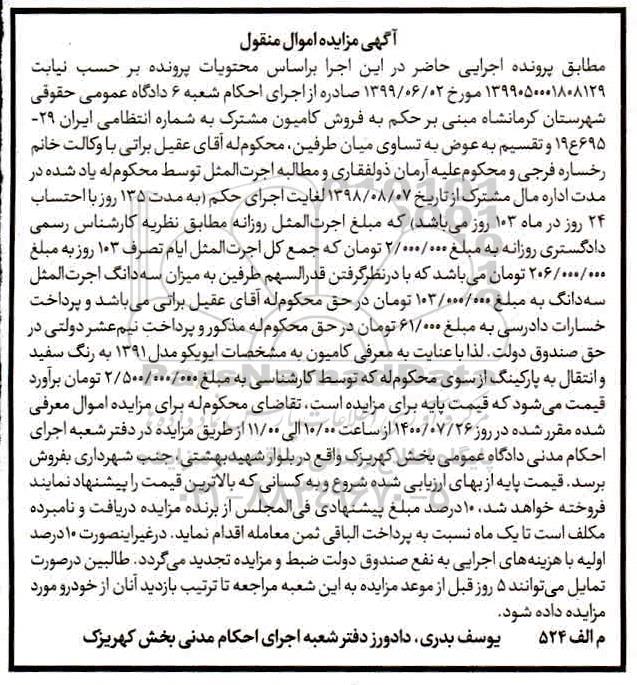 آگهی مزایده اموال منقول
مطابق پرونده اجرایی حاضر در این اجرا براساس محتویات پرونده بر حسب نیابت
۱۳۹۹۰۵۰۰۰۱۸۰۸۱۲۹ مورخ ۱۳۹۹/۰۶/۰۲ صادره از اجرای احکام شعبه ۶ دادگاه عمومی حقوقی
شهرستان کرمانشاه مبنی بر حکم به فروش کامیون مشترک به شماره انتظامی ایران ۲۹-
۶۹۵ع۱۹ و تقسیم به عوض به تساوی میان طرفین، محکوم‌له آقای عقیل براتی با وکالت خانم
رخساره فرجی و محکوم‌علیه آرمان ذولفقاری و مطالبه اجرت‌المثل توسط محکوم‌له یاد شده در
مدت اداره مال مشترک از تاریخ ۱۳۹۸/۰۸/۰۷ لغایت اجرای حکم (به مدت ۱۳۵ روز با احتساب
۲۴ روز در ماه ۱۰۳ روز می‌باشد) که مبلغ اجرت‌المثل روزانه مطابق نظریه کارشناس رسمی
دادگستری روزانه به مبلغ ۲/۰۰۰/۰۰۰ تومان که جمع کل اجرت‌المثل ایام تصرف ۱۰۳ روز به مبلغ
۲۰۶/۰۰۰/۰۰۰ تومان می‌باشد که با درنظرگرفتن قدرالسهم طرفین به میزان سه‌دانگ اجرت‌المثل
سه‌دانگ به مبلغ ۱۰۳/۰۰۰/۰۰۰ تومان در حق محکوم‌له آقای عقیل براتی می‌باشد و پرداخت
خسارات دادرسی به مبلغ ۶۱/۰۰۰ تومان در حق محکوم‌له مذکور و پرداخت نیم‌عشر دولتی در
حق صندوق دولت. لذا با عنایت به معرفی کامیون به مشخصات ایویکو مدل ۱۳۹۱ به رنگ سفید
و انتقال به پارکینگ از سوی محکوم‌له که توسط کارشناسی به مبلغ ۲/۵۰۰/۰۰۰/۰۰۰ تومان برآورد
قیمت می‌شود که قیمت پایه برای مزایده است، تقاضای محکوم‌له برای مزایده اموال معرفی
شده مقرر شده در روز ۱۴۰۰/۰۷/۲۶ از ساعت ۱۰/۰۰ الی ۱۱/۰۰ از طریق مزایده در دفتر شعبه اجرای
احکام مدنی دادگاه عمومی بخش کهریزک واقع در بلوار شهید بهشتی، جنب شهرداری بفروش
برسد. قیمت پایه از بهای ارزیابی شده شروع و به کسانی که بالاترین قیمت را پیشنهاد نمایند
فروخته خواهد شد، ۱۰درصد مبلغ پیشنهادی فی‌المجلس از برنده مزایده دریافت و نامبرده
مکلف است تا یک ماه نسبت به پرداخت الباقی ثمن معامله اقدام نماید. درغیراینصورت ۱۰درصد
اولیه با هزینه‌های اجرایی به نفع صندوق دولت ضبط و مزایده تجدید می‌گردد. طالبین درصورت
تمایل می‌توانند ۵ روز قبل از موعد مزایده به این شعبه مراجعه تا ترتیب بازدید آنان از خودرو مورد
مزایده داده شود.
م الف ۵۲۴ یوسف بدری، دادورز دفتر شعبه اجرای احکام مدنی بخش کهریزک
ParsNamadData
۰۲۱-۸۸۳۴۹۶۷۰-۵